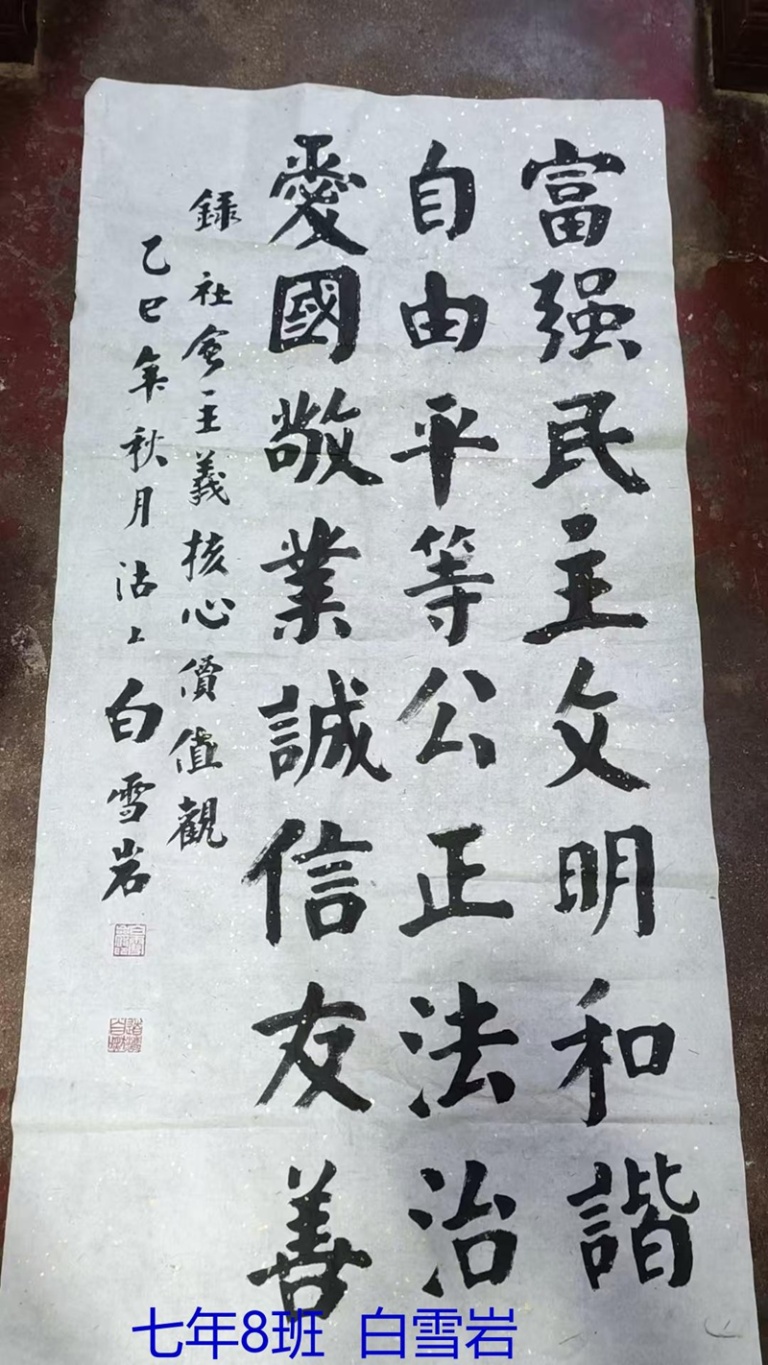 富强民主文明和諧
自由平等公正法治
愛國敬業誠信友善
録社會主義核心價值觀
乙巳年秋月沽上白雪岩
七年8班 白雪岩